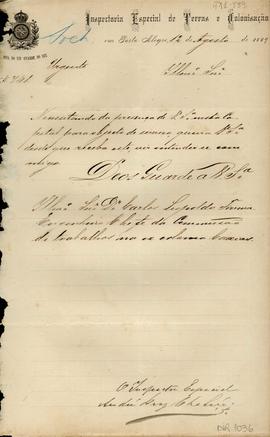 Inspectoria Especial de Terras e Colonisação
em Porto Alegre, 12 de Agosto de 1889
Urgente
Illmo Snr
Necessitando da presença de V. Sª n'esta
capital para objecto de serviço queira V. Sª
desde que receba este vir entender-se com
migo.
Deos Guarde a V. Sª
Illmo Snr Dr Carlos Leopoldo
Engenheiro Chefe da Commissão
de trabalhos na ex colonia Caxias
O Inspector Especial